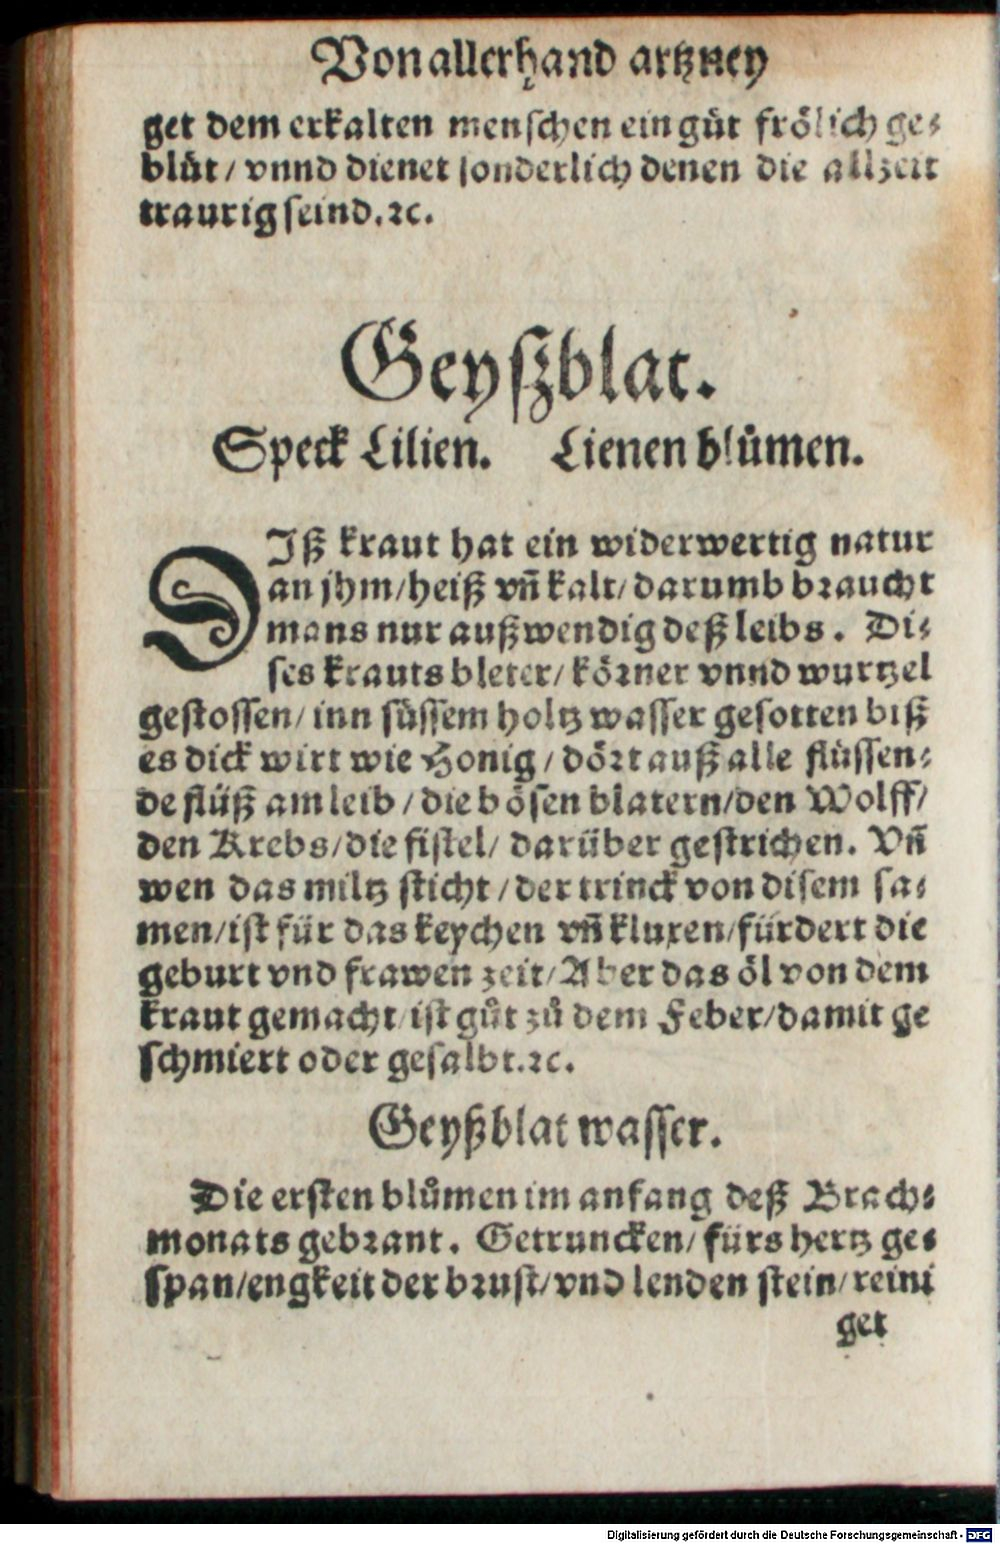 Von allerhand artzney
get dem erkalten menschen ein gůt frölich ge⸗
blůt / vnnd dienet sonderlich denen die allzeit
traurig seind. ꝛc.
Geyßblat.
Speck Lilien. Lienen blůmen.
DIß kraut hat ein widerwertig natur
an jhm / heiß vñ kalt / darumb braucht
mans nur außwendig deß leibs. Di⸗
ses krauts bleter / körner vnnd wurtzel
gestossen / inn süssem holtz wasser gesotten biß
es dick wirt wie Honig / dört auß alle flüssen⸗
de flüß am leib / die bösen blatern / den Wolff /
den Krebs / die fistel / darüber gestrichen. Vñ
wen das miltz sticht / der trinck von disem sa⸗
men / ist für das keychen vñ kluxen / fürdert die
geburt vnd frawen zeit / Aber das öl von dem
kraut gemacht / ist gůt zů dem Feber / damit ge
schmiert oder gesalbt. ꝛc.
Geyßblat wasser.
Die ersten blůmen im anfang deß Brach⸗
monats gebrant. Getruncken / fürs hertz ge⸗
span / engkeit der brust / vnd lenden stein / reini
get
Digitalisierung gefördert durch die Deutsche Forschungsgemeinschaft - DFG